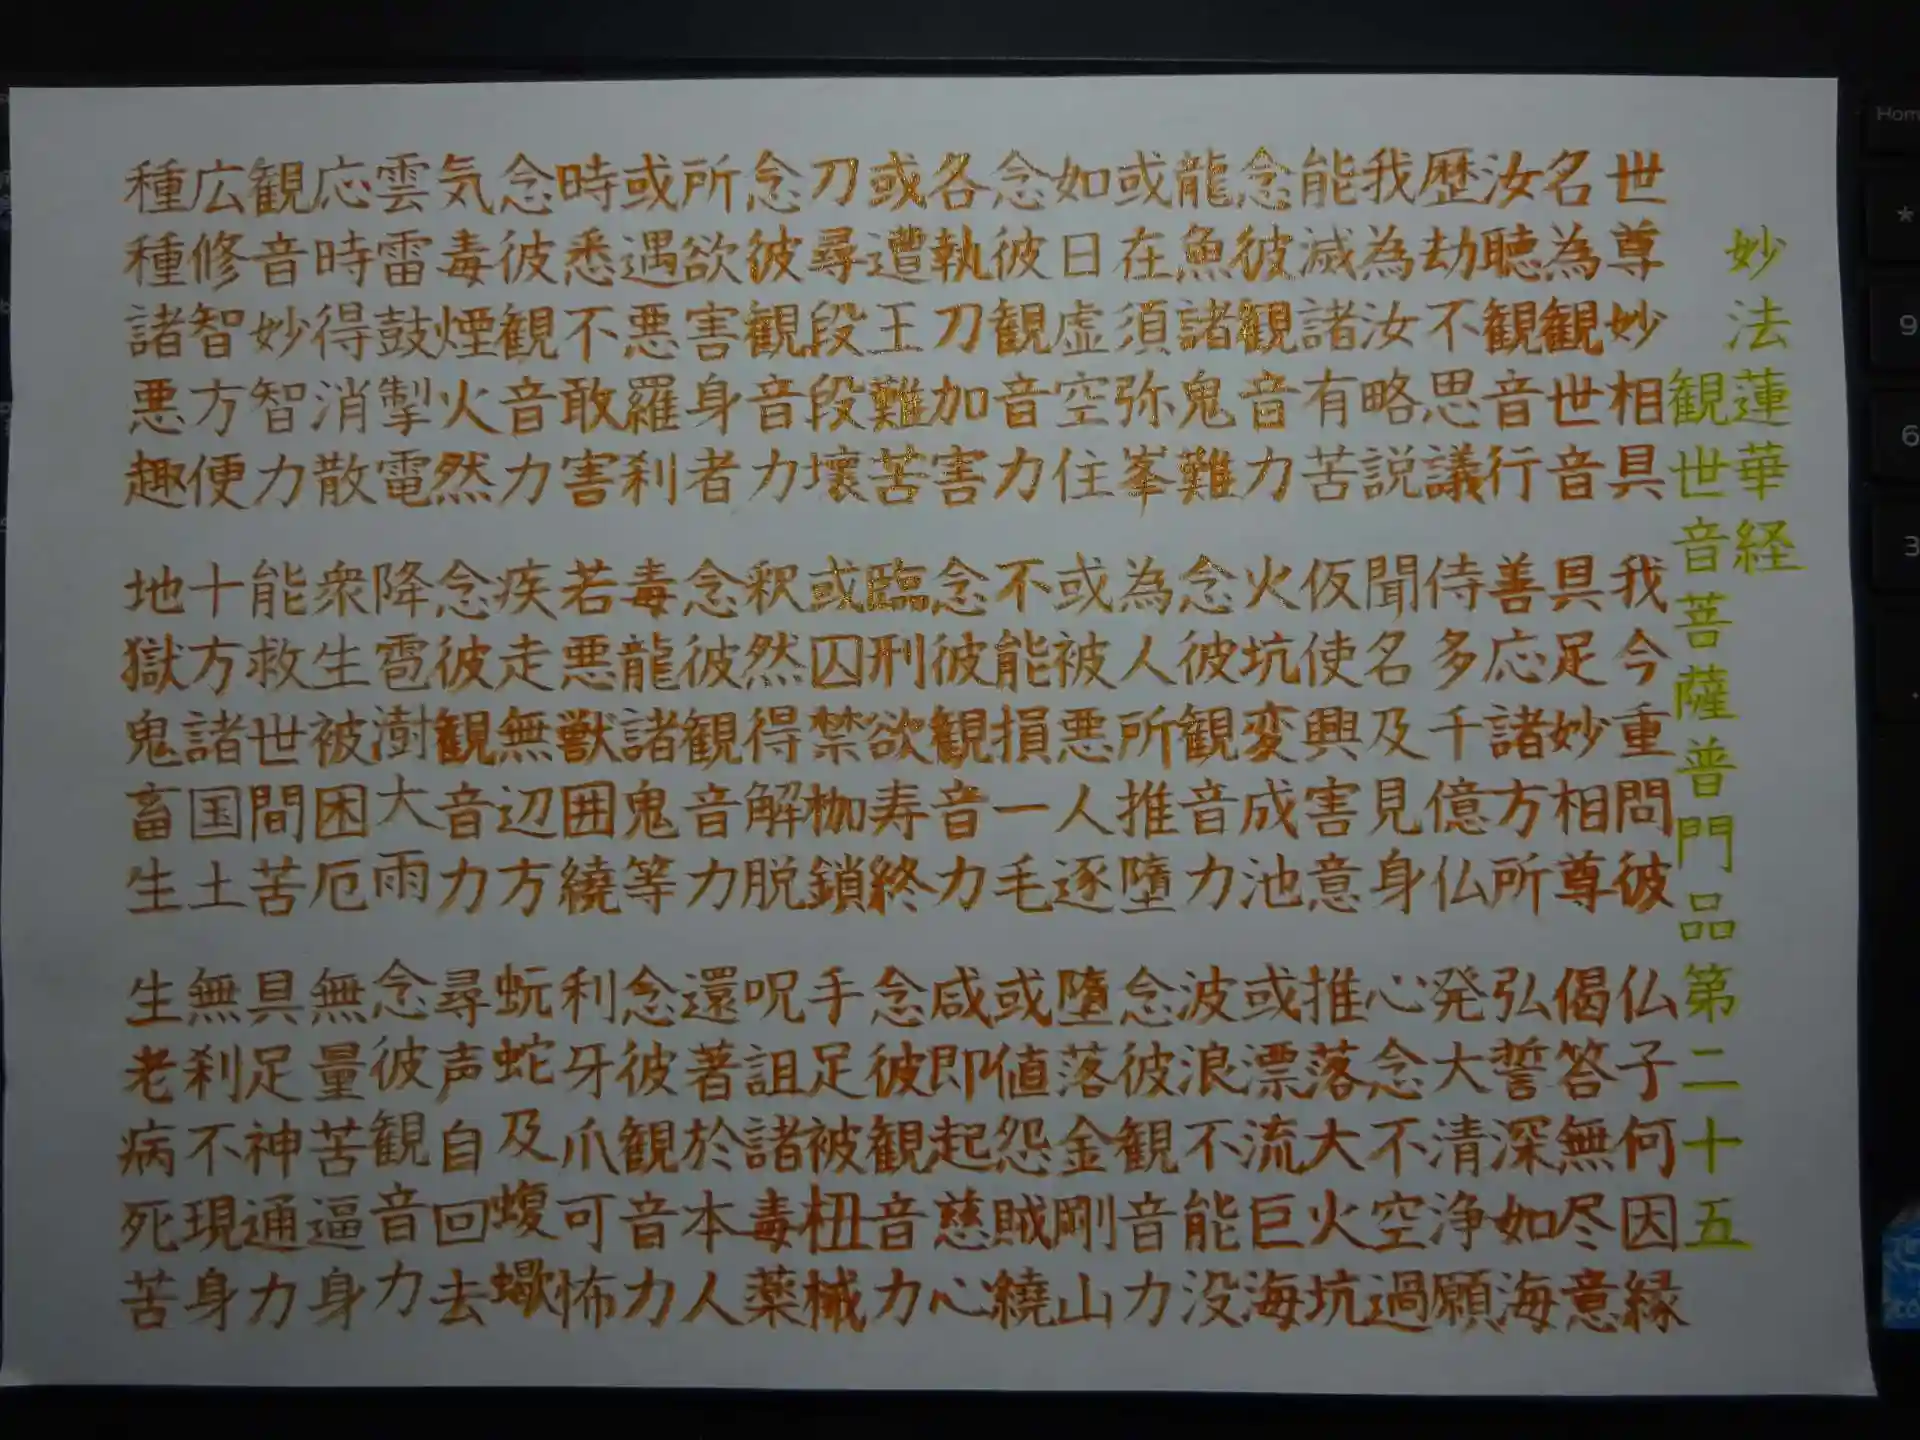 妙法蓮華経
観世音菩薩普門品第二十五
世尊妙相具 我今重問彼 仏子何因縁
名為観世音 具足妙相尊 偈答無尽意
汝聴観音行 善応諸方所 弘誓深如海
歴劫不思議 侍多千億仏 発大清浄願
我為汝略説 聞名及見身 心念不空過
能滅諸有苦 仮使興害意 推落大火坑
念彼観音力 火坑変成池 或漂流巨海
龍魚諸鬼難 念彼観音力 波浪不能没
或在須弥峯 為人所推墮 念彼観音力
如日虚空住 或被悪人逐 墮落金剛山
念彼観音力 不能損一毛 或値怨賊繞
各執刀加害 念彼観音力 咸即起慈心
或遭王難苦 臨刑欲寿終 念彼観音力
刀尋段段壞 或囚禁枷鎖 手足被杻械
念彼観音力 釈然得解脱 呪詛諸毒薬
所欲害身者 念彼観音力 還著於本人
或遇悪羅刹 毒龍諸鬼等 念彼観音力
時悉不敢害 若悪獣囲繞 利牙爪可怖
念彼観音力 疾走無辺方 蚖蛇及蝮蠍
気毒煙火然 念彼観音力 尋声自回去
雲雷鼓掣電 降雹澍大雨 念彼観音力
応時得消散 衆生被困厄 無量苦逼身
観音妙智力 能救世間苦 具足神通力
広修智方便 十方諸国土 無刹不現身
種種諸悪趣 地獄鬼畜生 生老病死苦
Hom
*
9
6
3